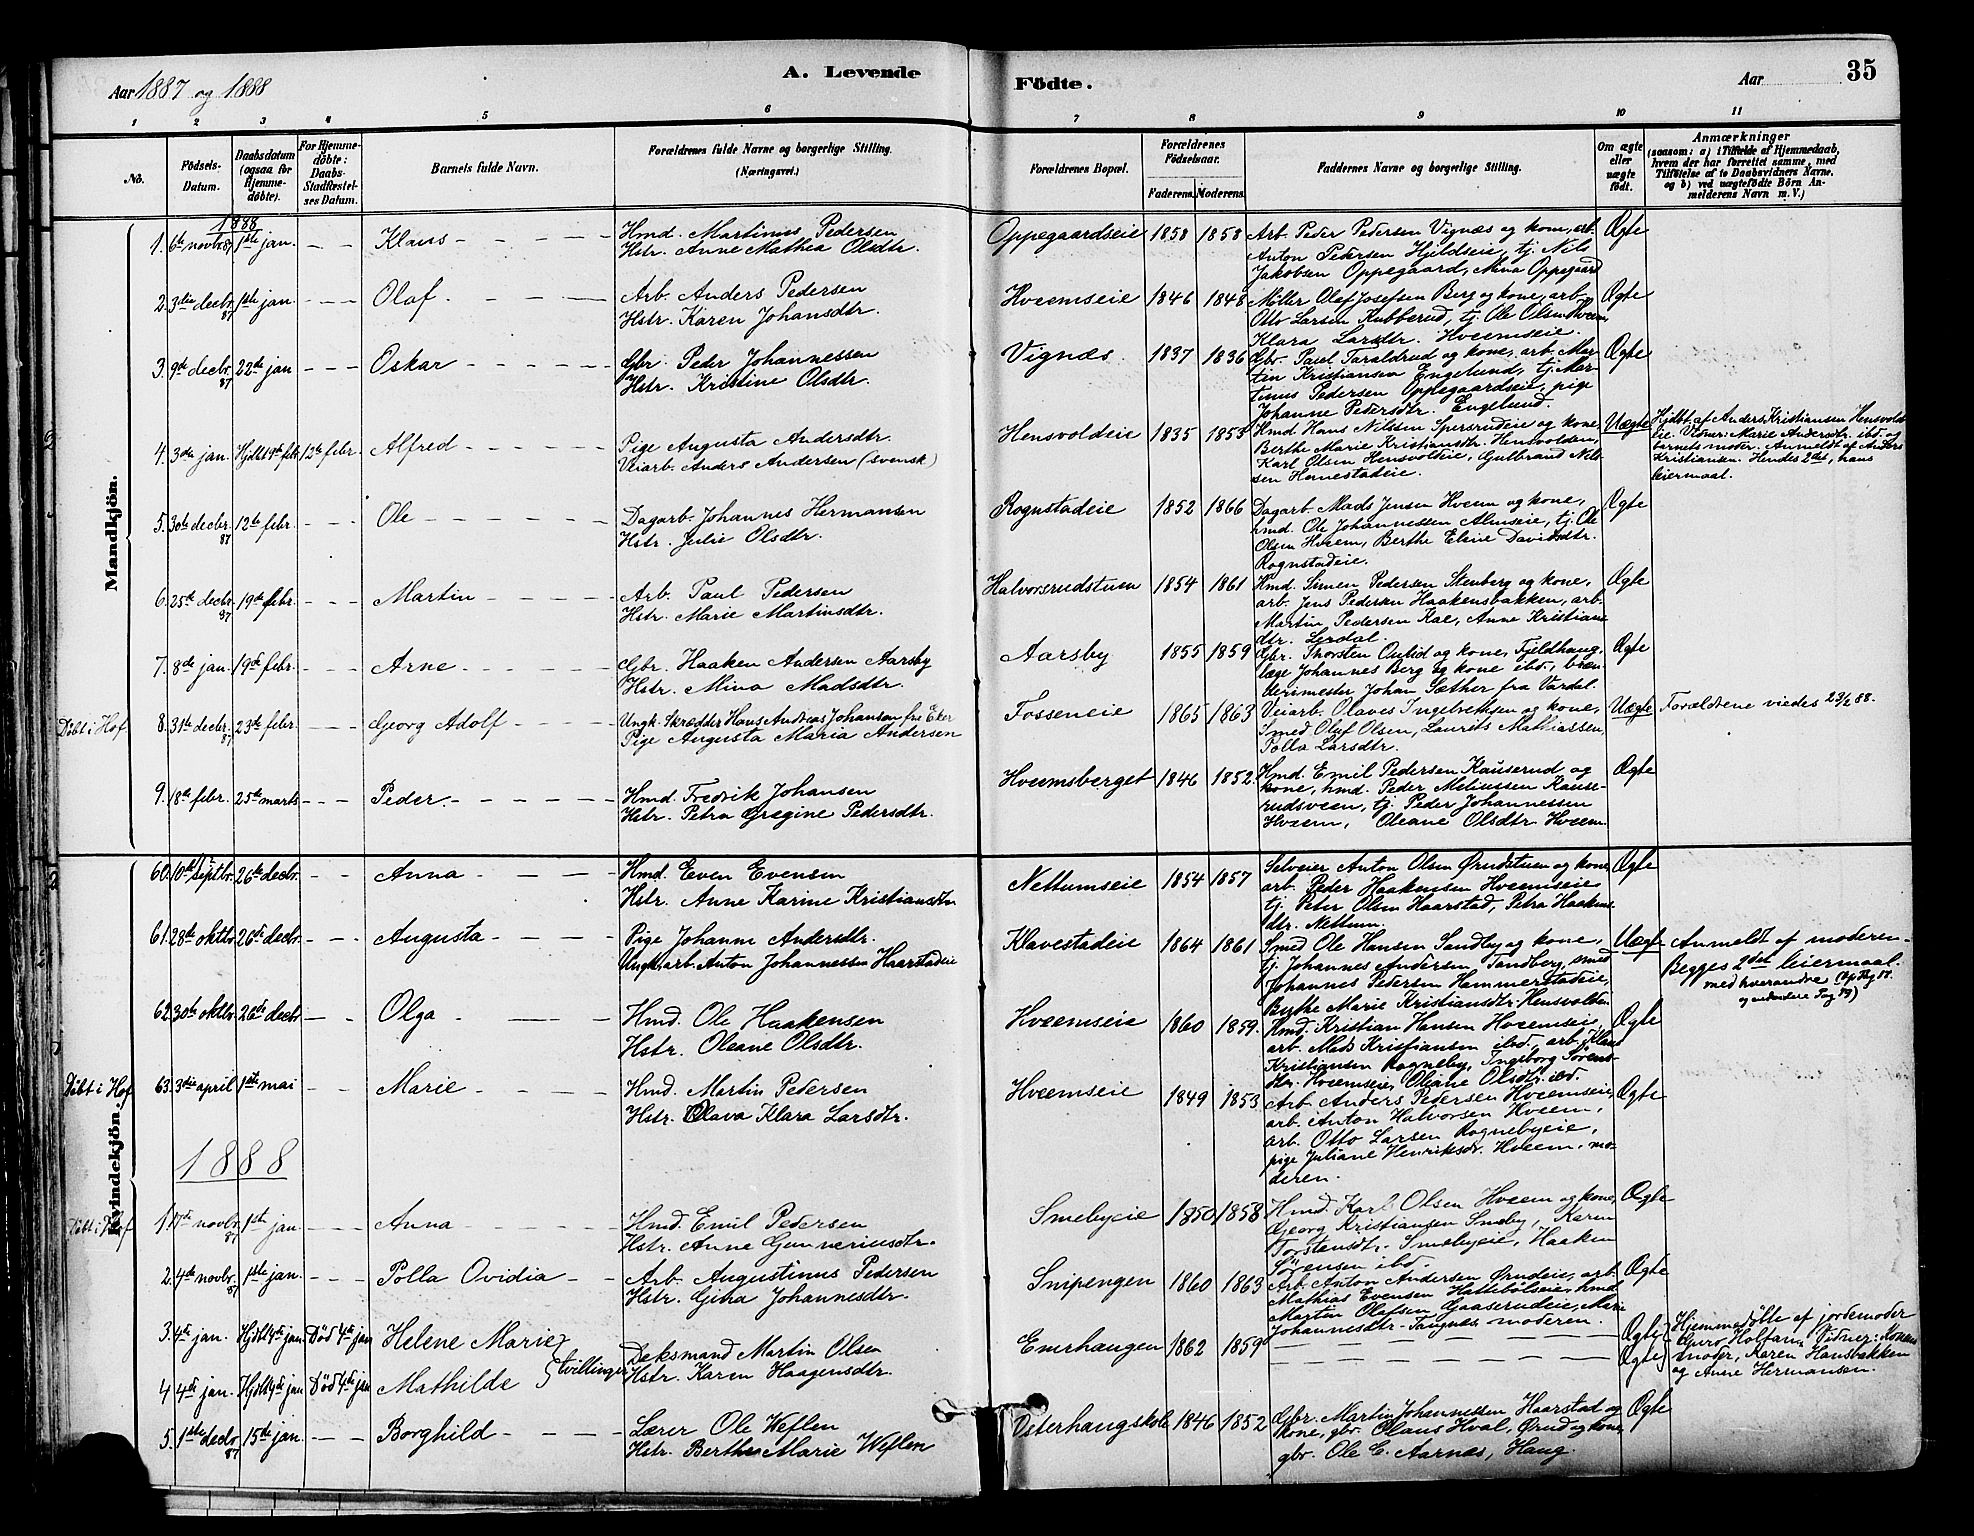 Aar 1887 og 1888
A. Levende
Födte.
Aar
35
1 2 3 4 5 6 7 8 9 10 11
No.
Födsels-Datum.
Daabsdatum (ogsaa for Hjemmedöbte).
For Hjemmedöbte: Daabs-Stadfæstelses Datum.
Barnets fulde Navn.
Forældrenes fulde Navne og borgerlige Stilling. (Næringsvei.)
Forældrenes Bopæl.
Forældrenes Födselsaar.
Faderens. Moderens.
Faddernes Navne og borgerlige Stilling.
Om ægte eller uægte födt.
Anmærkninger
(saasom: a) i Tilfælde af Hjemmedaab, hvem der har forrettet samme, med Tilföielse af to Daabsvidners Navne, og b) ved uægtefödte Börn Anmelderens Navn m. V.)
Mandkjön.
1888
1. 6te novbr. 87 1ste jan. Klaus
Hmd. Martinus Pedersen
Hstr. Anne Mathea Olsdtr.
Oppegaardseie 1858 1858
Arb. Peder Pedersen Vignæs og kone, arb.
Anton Pedersen Hjeldseie, tj. Nils
Jakobsen Oppegaard, Mina Oppegaard
Ægte
2. 3die decbr. 87 1ste jan. Olaf
Arb. Anders Pedersen
Hstr. Karen Johansdtr.
Hveemseie 1846 1848
Müller Olaf Josefsen Berg og kone, arb.
Otto Larsen Rubberud, tj. Ole Olsen Hveem
Klara Larsdtr. Hveemseie.
Ægte
3. 9de decbr. 87 22de jan Oskar
Gbr. Peder Johannessen
Hstr. Kristine Olsdtr.
Vignæs 1837 1836
Gbr. Paul Taraldrud og kone, arb. Mar-
tin Kristiansen Engelund, tj. Mar-
tinus Pedersen Oppegaardseie, pige
Johanne Pedersdtr. Engelund.
Ægte
4. 3die jan. Hjdbt 4de febr. 12te febr. Alfred
Pige Augusta Andersdtr.
Veiarb. Anders Andersen (svensk)
Hensvoldeie 1835 1853
Hmd. Hans Nilsen Spersrudeie og kone,
Berthe Marie Kristiansdtr. Hensvolden,
Karl Olsen Hensvoldeie, Gulbrand Nil-
sen Hennestadeie.
Uægte
Hjdbt. af Anders Kristiansen Hensvold-
eie. Vidner: Marie Andersdtr. ibd. og
barnets moder. Anmeldt af Anders
Kristiansen. Hendes 2det, hans
leiermaal.
5. 30te decbr. 87 12te febr. Ole
Dagarb. Johannes Hermansen
Hstr. Julie Olsdtr.
Rognstadeie 1852 1866
Dagarb. Mads Jensen Hveem og kone,
hmd. Ole Johannessen Almseie, tj. Ole
Olsen Hveem, Berthe Eline Davidsdtr.
Rognstadeie.
Ægte
6. 25de decbr. 87 19de febr. Martin
Arb. Paul Pedersen
Hstr. Marie Martinsdtr.
Halvorsrudstuen 1854 1861
Hmd. Simen Pedersen Stenberg og kone,
arb. Jens Pedersen Haakensbakken, arb.
Martin Pedersen Kae, Anne Kristians
dtr. Lyrdal.
Ægte
7. 8de jan. 19de febr. Arne
Gbr. Haaken Andersen Aarsby
Hstr. Mina Madsdtr.
Aarsby 1855 1859
Gbr. Thorsten Ourlid og kone, Fjeldhaug,
læge Johannes Berg og kone ibd., bræn-
derimester Johan Sæther fra Vardal.
Ægte
Döbt i Hof
8. 31te decbr. 87 23de febr. Georg Adolf
Ungk. Skrædder Hans Andreas Johansen fra Eker
Pige Augusta Maria Andersen
Fosseneie 1865 1863
Veiarb. Olaves Ingebrethsen og kone,
Smed Oluf Olsen, Laurits Mathiassen,
Polla Larsdtr.
Uægte
Forældrene viedes 23/2 88.
9. 18de febr. 25de marts Peder
Hmd. Fredrik Johansen
Hstr. Petra Gregine Pedersdtr.
Hveemsberget 1846 1852
Hmd. Emil Pedersen Kauserud og
kone, hmd. Peder Meliussen Kause-
rudsveen, tj. Peder Johannessen
Hveem, Oleane Olsdtr. Hveem
Ægte
Kvindekjön.
60. 10de septbr. 26de decbr. Anna
Hmd. Even Evensen
Hstr. Anne Karine Kristiansdtr
Nettumseie 1854 1857
Selveier Anton Olsen Ørudstuen og kone,
arb. Peder Haakensen Hveemseie
tj. Peter Olsen Haarstad, Petra Haakens
dtr. Nettum.
Ægte
61. 28de oktbr. 26de decbr. Augusta
Pige Johanne Andersdtr.
Ungk. arb. Anton Johannessen Haarstadeie
Klavestadeie 1864 1861
Smed Ole Hansen Sandby og kone,
tj. Johannes Andersen Tandberg, smed
Johannes Pedersen Hammerstadeie,
Berthe Marie Kristiansdtr. Hensvolden
Uægte
Anmeldt af moderen.
Begges 2det leiermaal
med hverandre
62. 30te oktbr. 26de decbr Olga
Hmd. Ole Haakensen
Hstr. Oleane Olsdtr.
Hveemseie 1860 1859.
Hmd. Kristian Hansen Hveemseie,
arb. Mads Kristiansen ibd., arb. Klaus
Kristiansen Rogneby, Ingeborg Sørens-
dtr. Hveemseie, Oleane Olsdtr. ibd.
Ægte
Döbt i Hof
63. 3die april 1ste mai Marie
Hmd. Martin Pedersen
Hstr. Olava Klara Larsdtr.
Hveemseie 1849 1853
Arb. Anders Pedersen Hveemseie,
arb. Anton Halvorsen Hveem,
arb. Otto Larsen Rognebyeie,
pige Juliane Henriksdtr. Hveem, mo-
deren.
Ægte
1888
Döbt i Hof
1. novbr. 87 1ste jan Anna
Hmd. Emil Pedersen
Hstr. Anne Gunneriusdtr.
Smebyeie 1850 1858
Hmd. Karl Olsen Hveem og kone,
Georg Kristiansen Smeby, Karen
Torstensdtr. Smebyeie, Haaken
Sörensen ibd.
Ægte
2. 4de novbr. 87 1ste jan. Polla Ovidia
Arb. Augustinus Pedersen
Hstr. Gina Johannesdtr.
Snipengen 1860 1863
Arb. Anton Andersen Ørudeie, arb.
Mathias Evensen Hattebölseie, hmd
Martin Olafsen Gaaserudeie, Marie
Johannesdtr. Tangnæs, moderen.
Ægte
3. 4de jan. Hjdbt 4de jan Död 4de jan Helene Marie
4. 4de jan. Hjdbt 4de jan Död 4de jan Mathilde } tvillinger
Deksmand Martin Olsen
Hstr. Karen Haagensdtr.
Emrhaugen 1862 1859
Ægte
Ægte
Hjemmedöbte af jordemoder
Guro Holtan. Vidner: Konens
moder, Karen Hansbakken
og Anne Hermansen.
5. 1ste decbr 87 15de jan. Borghild
Lærer Ole Weflen
Hstr. Berthe Marie Weflen
Vesterhaugskole 1846 1852
Gbr. Martin Johannessen Haarstad og
kone, gbr. Olaus Hval, Ørud og kone,
gbr. Ole E. Aarnæs, Haug.
Ægte